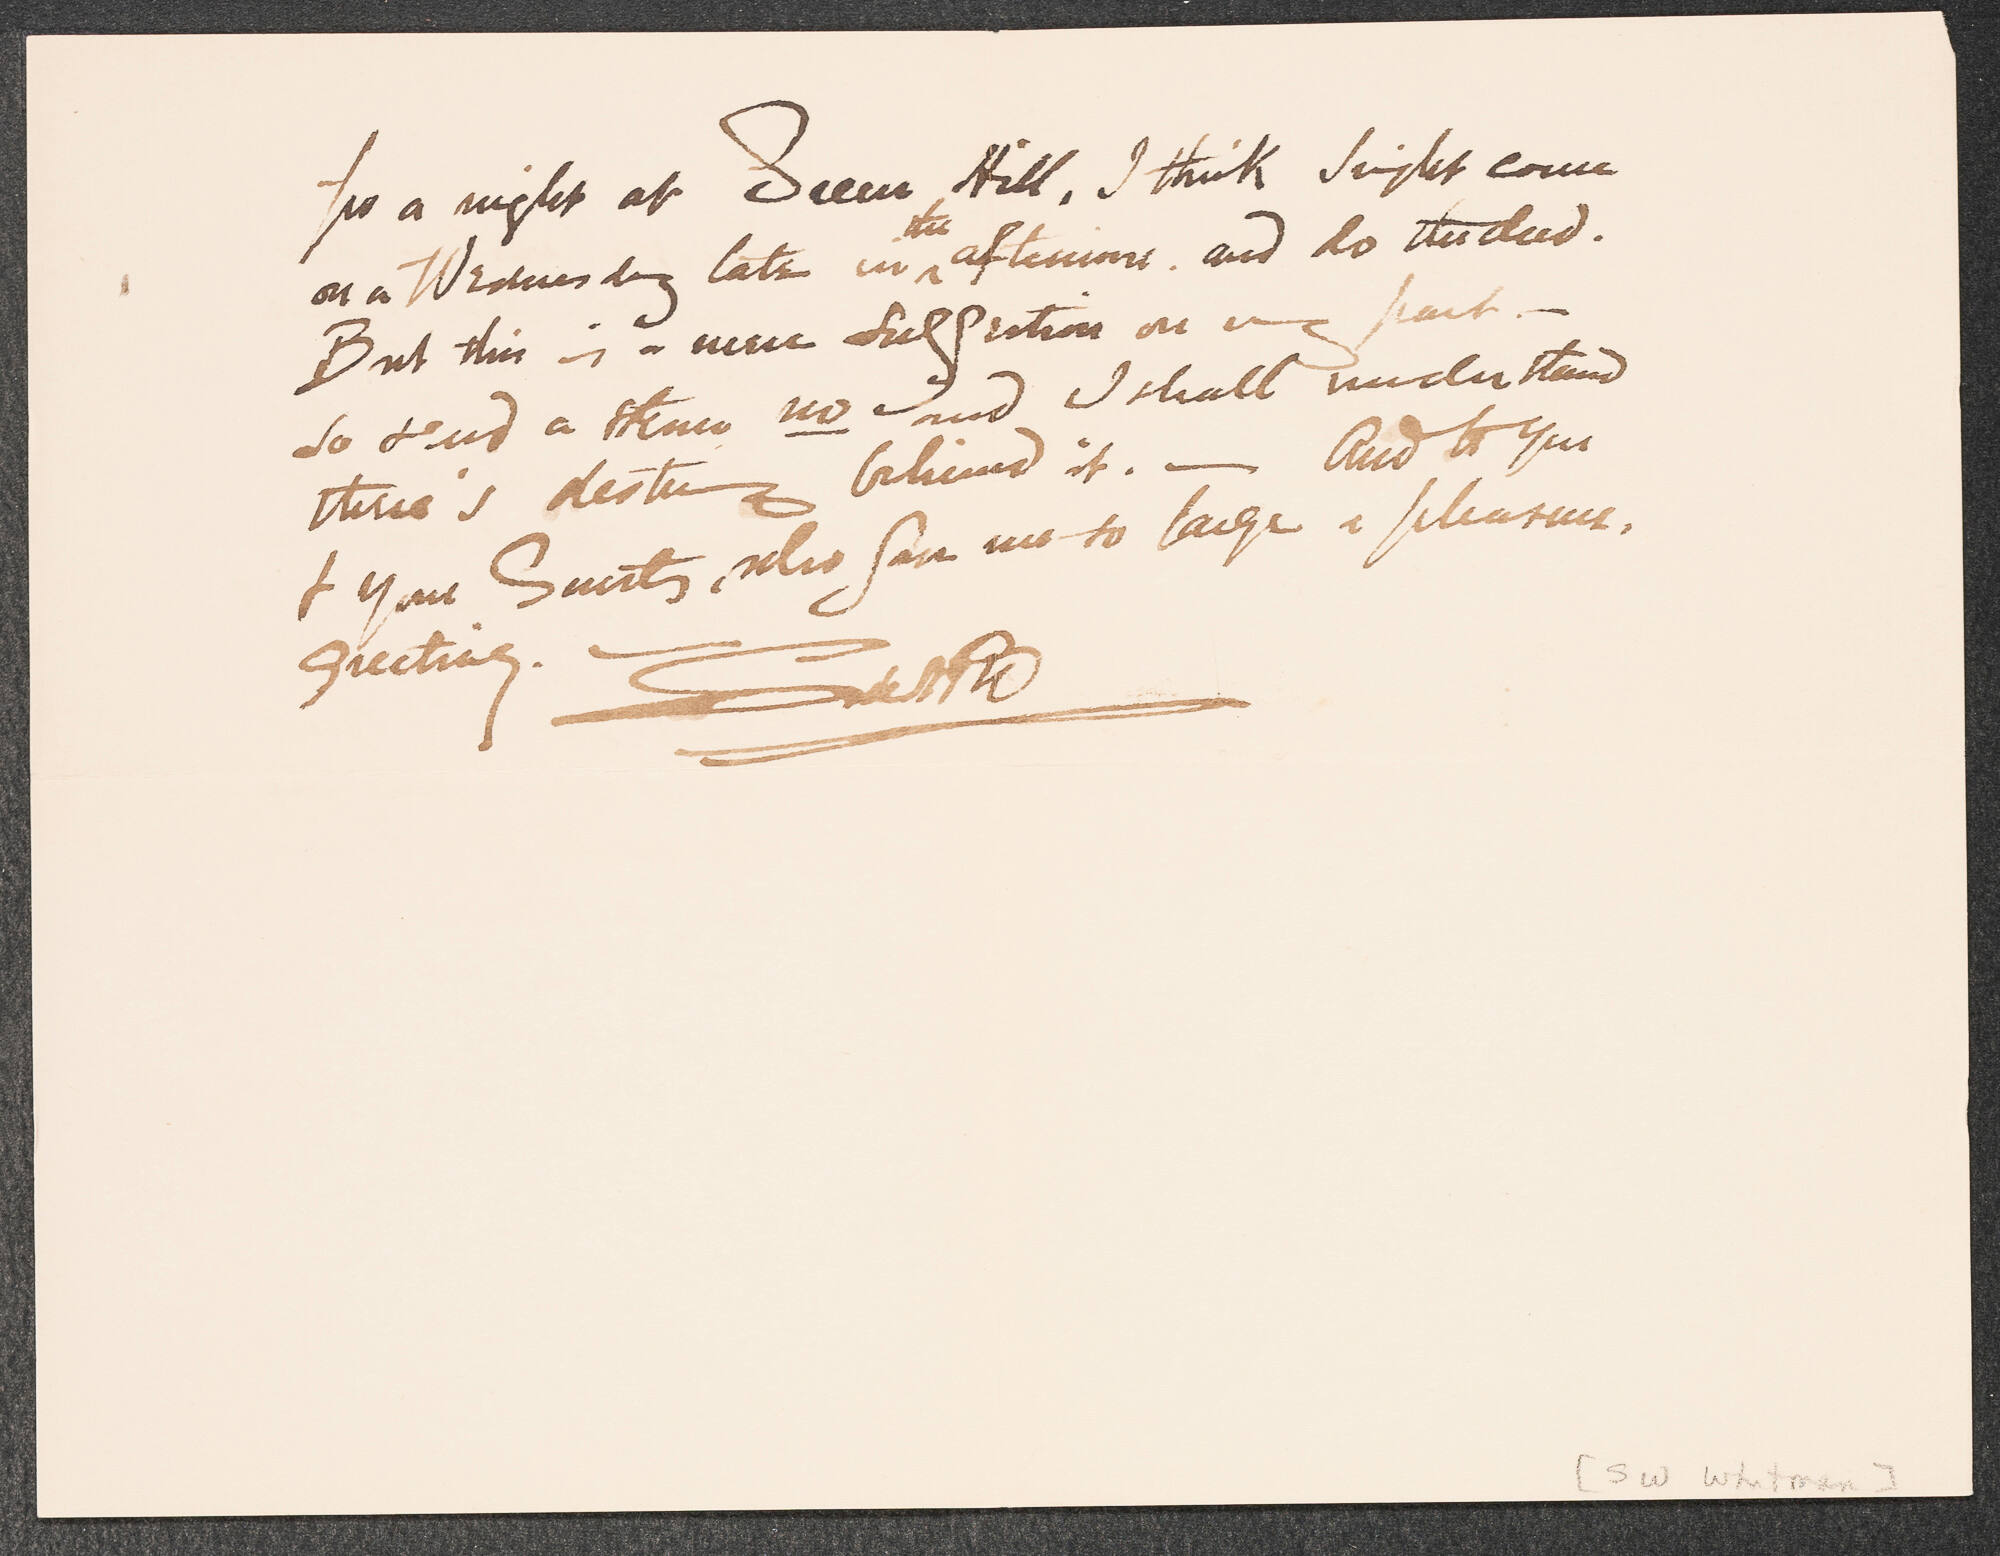 for a night at Green Hill, I think I might come
on a Wednesday late in the afternoon. and do the deed.
But this is a mere suggestion on my part. —
So send a stern no — and I shall understand
there's destiny behind it. — And to you
& your Guests, who gave me so large a pleasure,
greeting.
[SW Whitman]